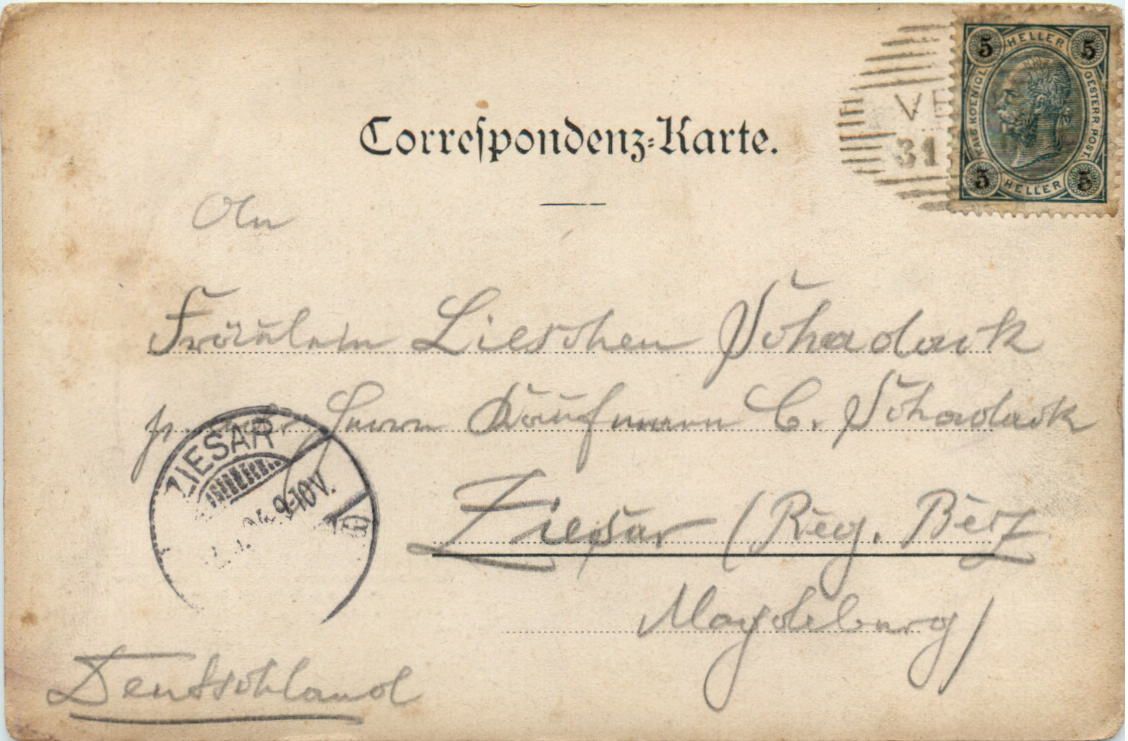 Correspondenz-Karte.
5 HELLER 5
KAIS. KOENIGL. OESTERR. POST.
5 HELLER 5
VE
31
An
Fräulein Lieschen Schadack
Herrn Kaufmann C. Schadack
ZIESAR
9-10V.
Ziesar (Reg. Bez
Magdeburg)
Deutschland